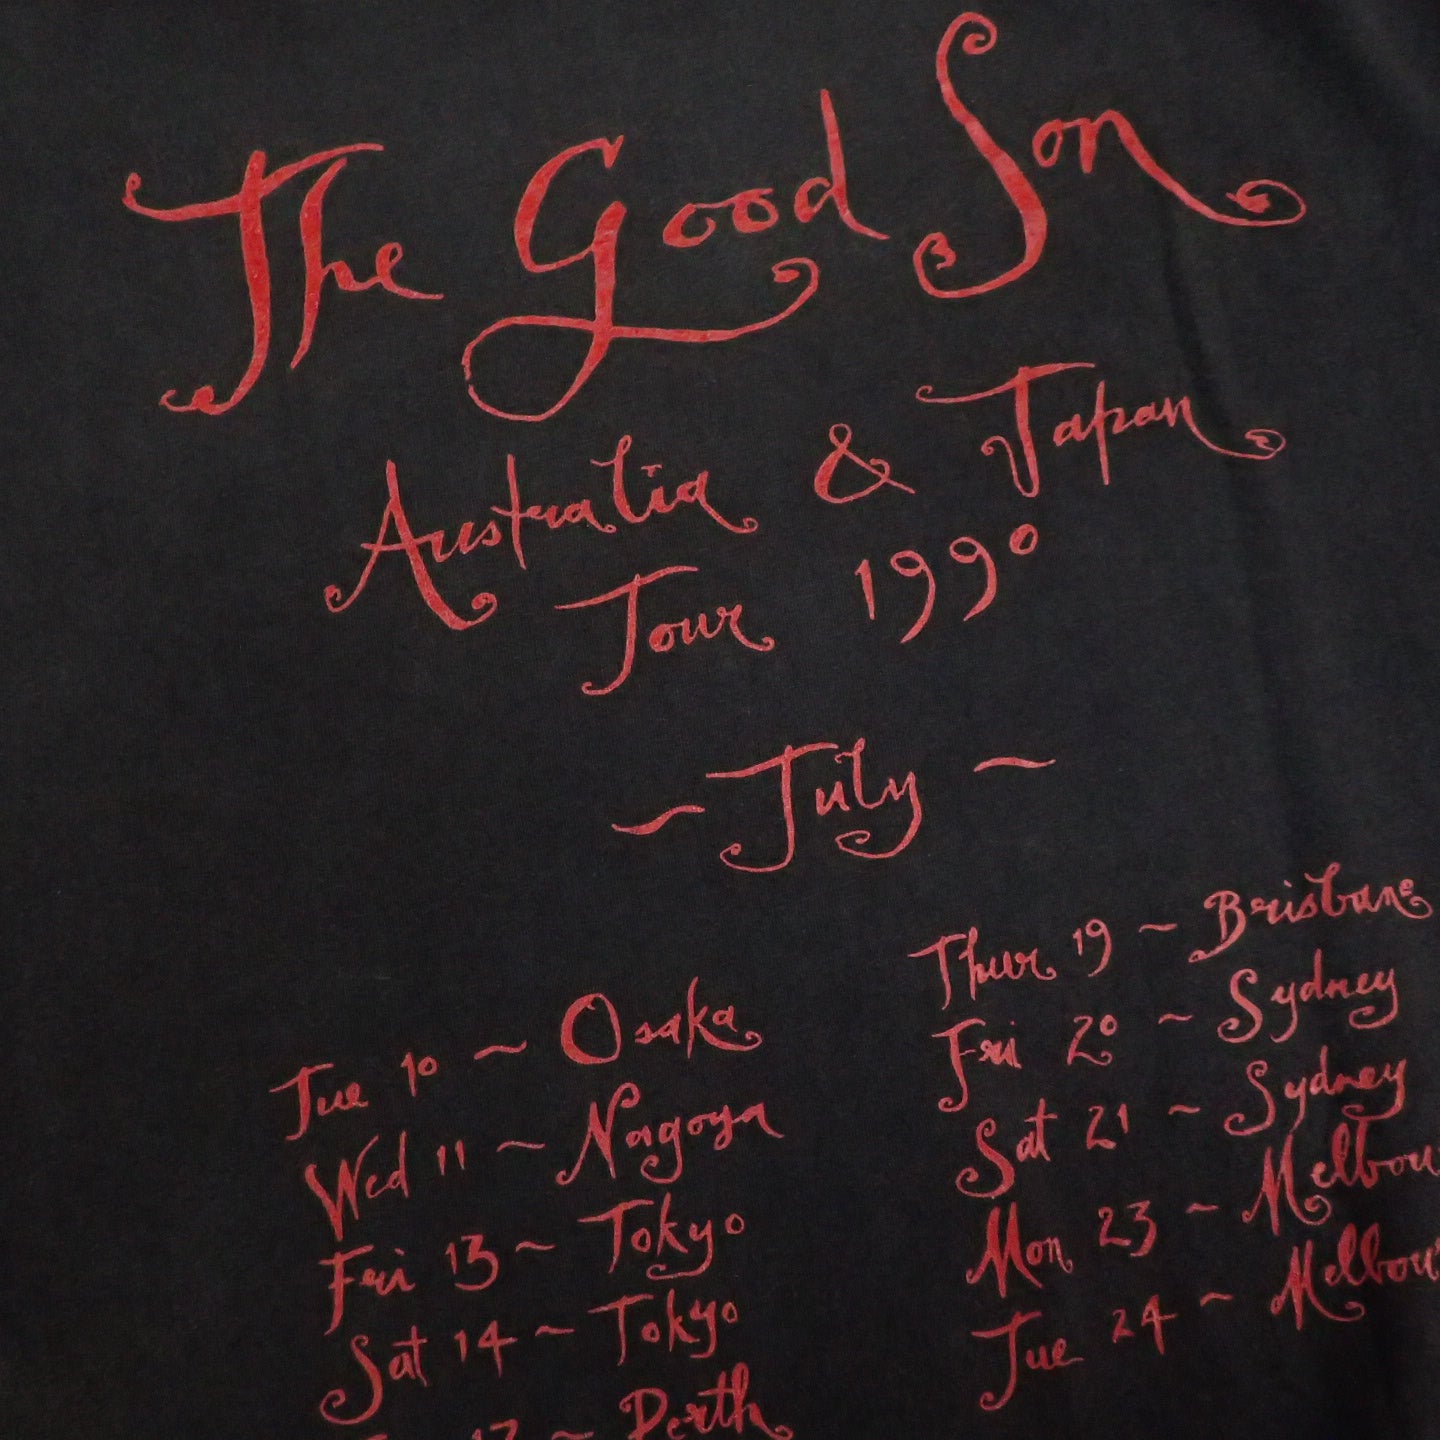 The Good Son
Australia & Japan
Tour 1990
~ July ~
Tue 10 ~ Osaka
Wed 11 ~ Nagoya
Fri 13 ~ Tokyo
Sat 14 ~ Tokyo
17 ~ Perth
Thur 19 ~ Brisbane
Fri 20 ~ Sydney
Sat 21 ~ Sydney
Mon 23 ~
Tue 24 ~